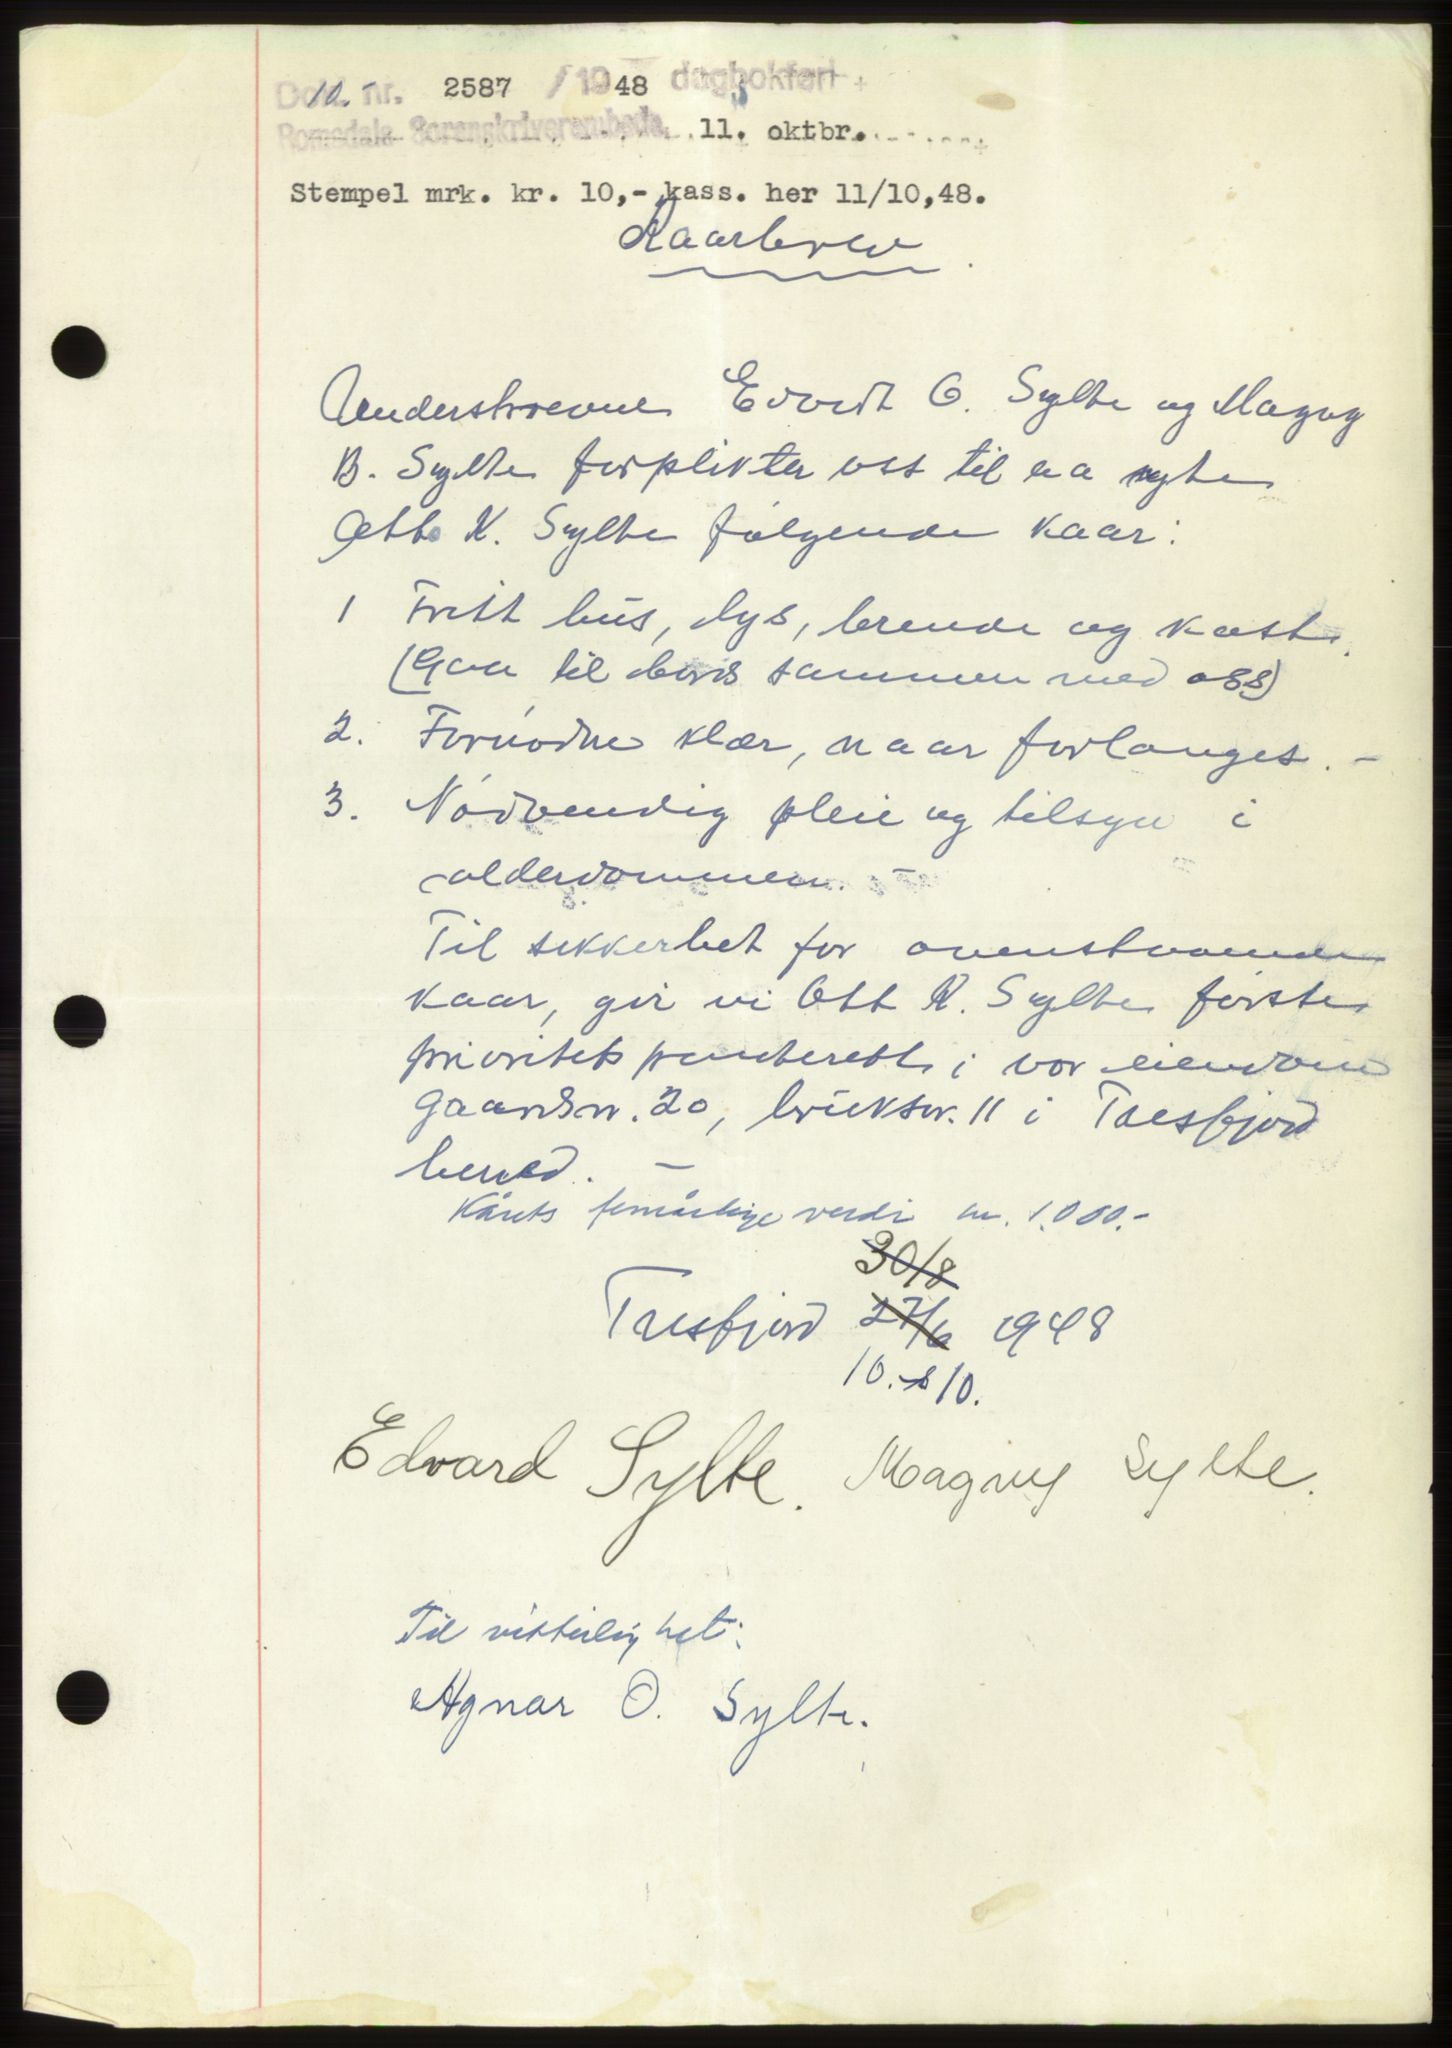 Dok. nr. 2587 / 1948 dagbokført
10.
Romsdals Sorenskriverembede 11. oktbr.
Stempel mrk. kr. 10,- kass. her 11/10,48.
Kaarbrev
Underskrevne Edvart O. Sylte og Magny
B. Sylte forplikter oss til aa yte
Otto K. Sylte følgende kaar:
1 Fritt hus, lys, brende og kost.
(Gaa til bords sammen med oss)
2. Fornødne klær, naar forlanges. -
3. Nødvendig pleie og tilsyn i
alderdommen. -
Til sikkerhet for ovenstaaende
kaar, gir vi Otto K. Sylte første
prioritets panterett i vor eiendom
gaardsnr. 20, bruksnr. 11 i Tresfjord
herred. -
Kårets femårlige verdi kr. 1.000.-
30/8
Tresfjord 27/6 1948
10. 10.
Edvard Sylte. Magny Sylte.
Til vitterlighet:
Agnar O. Sylte.